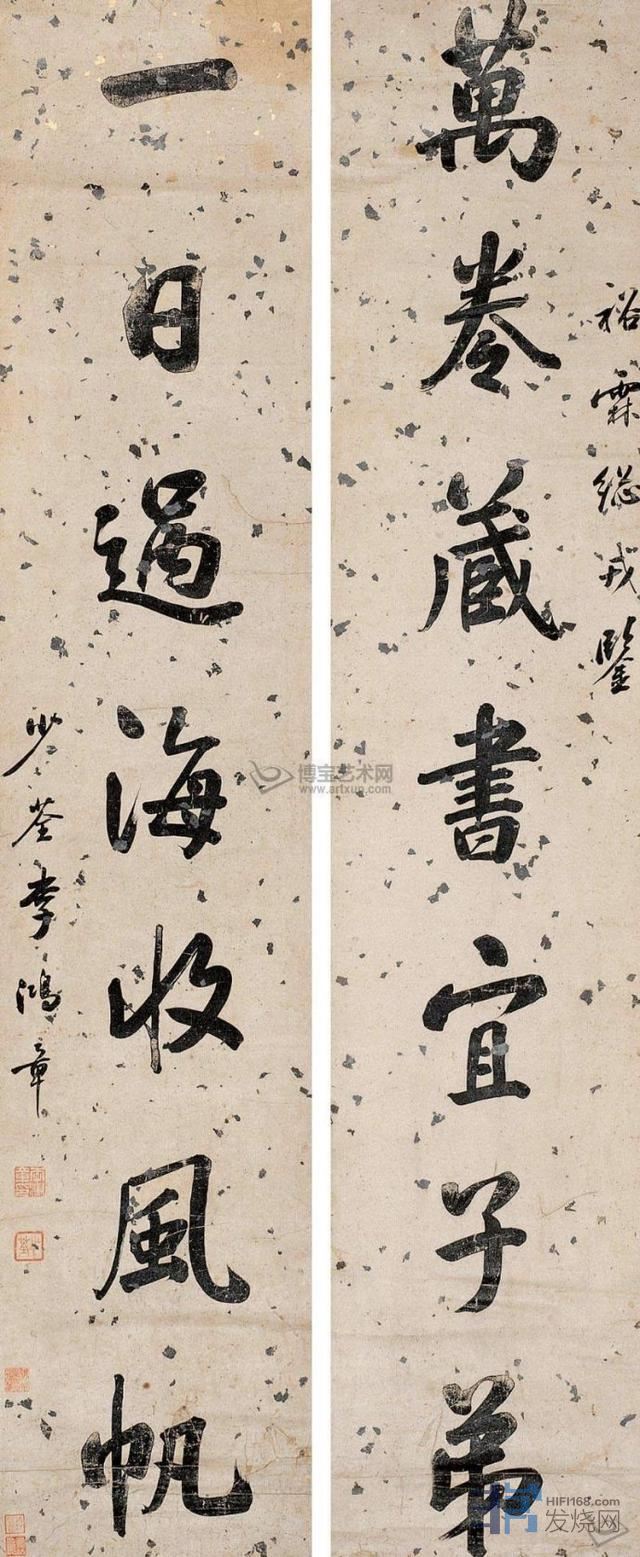 裕霖總戎鑒
萬卷藏書宜子弟
一日過海收風帆
少荃李鴻章
博宝艺术网
www.artxun.com
HIFI168.com
发烧网